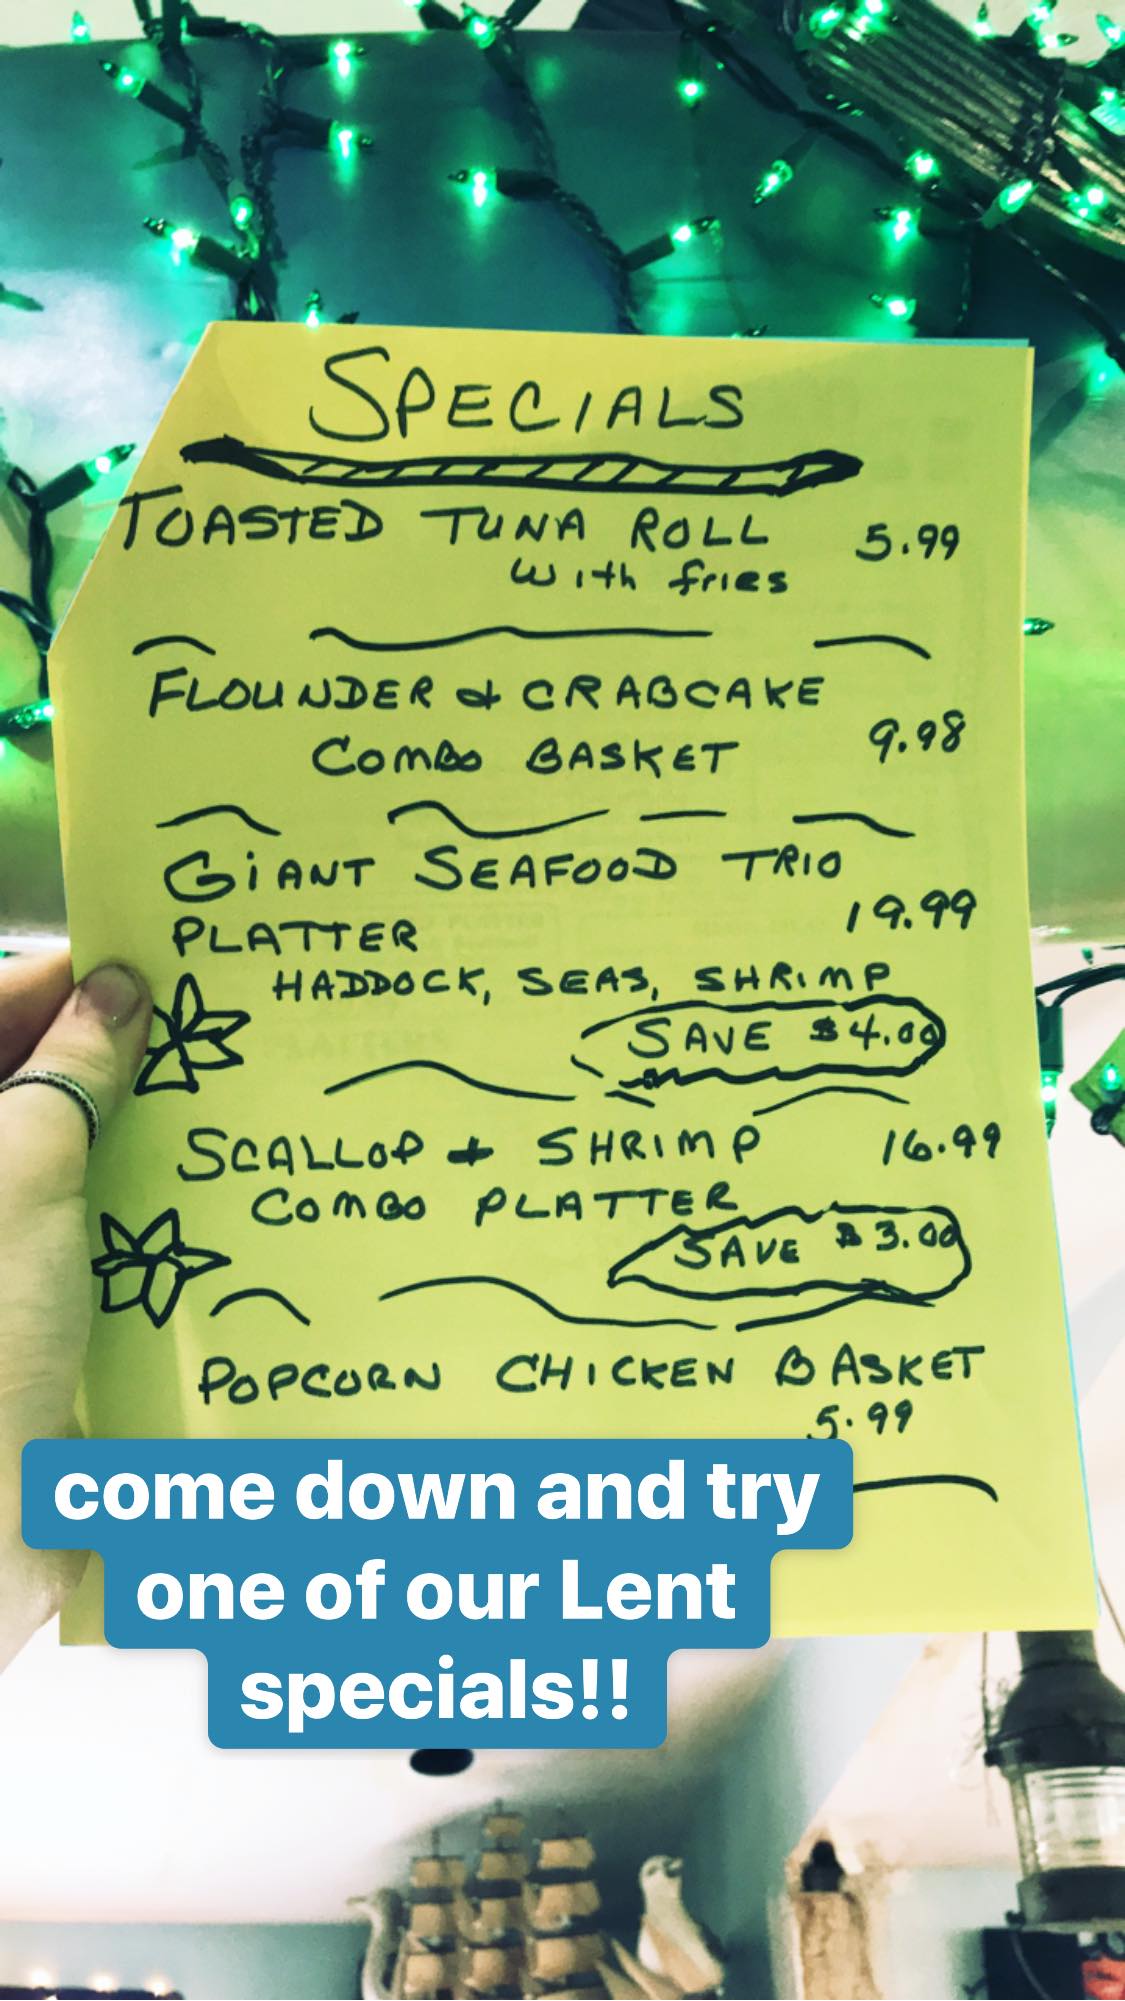 SPECIALS
TOASTED TUNA ROLL 5.99
with fries
FLOUNDER & CRABCAKE
COMBO BASKET 9.98
GiANT SEAFOOD TRIO
PLATTER 19.99
HADDOCK, SEAS, SHRIMP
SAVE $4.00
SCALLOP + SHRIMP 16.99
COMBO PLATTER
SAVE $3.00
POPCORN CHICKEN BASKET
5.99
come down and try
one of our Lent
specials!!